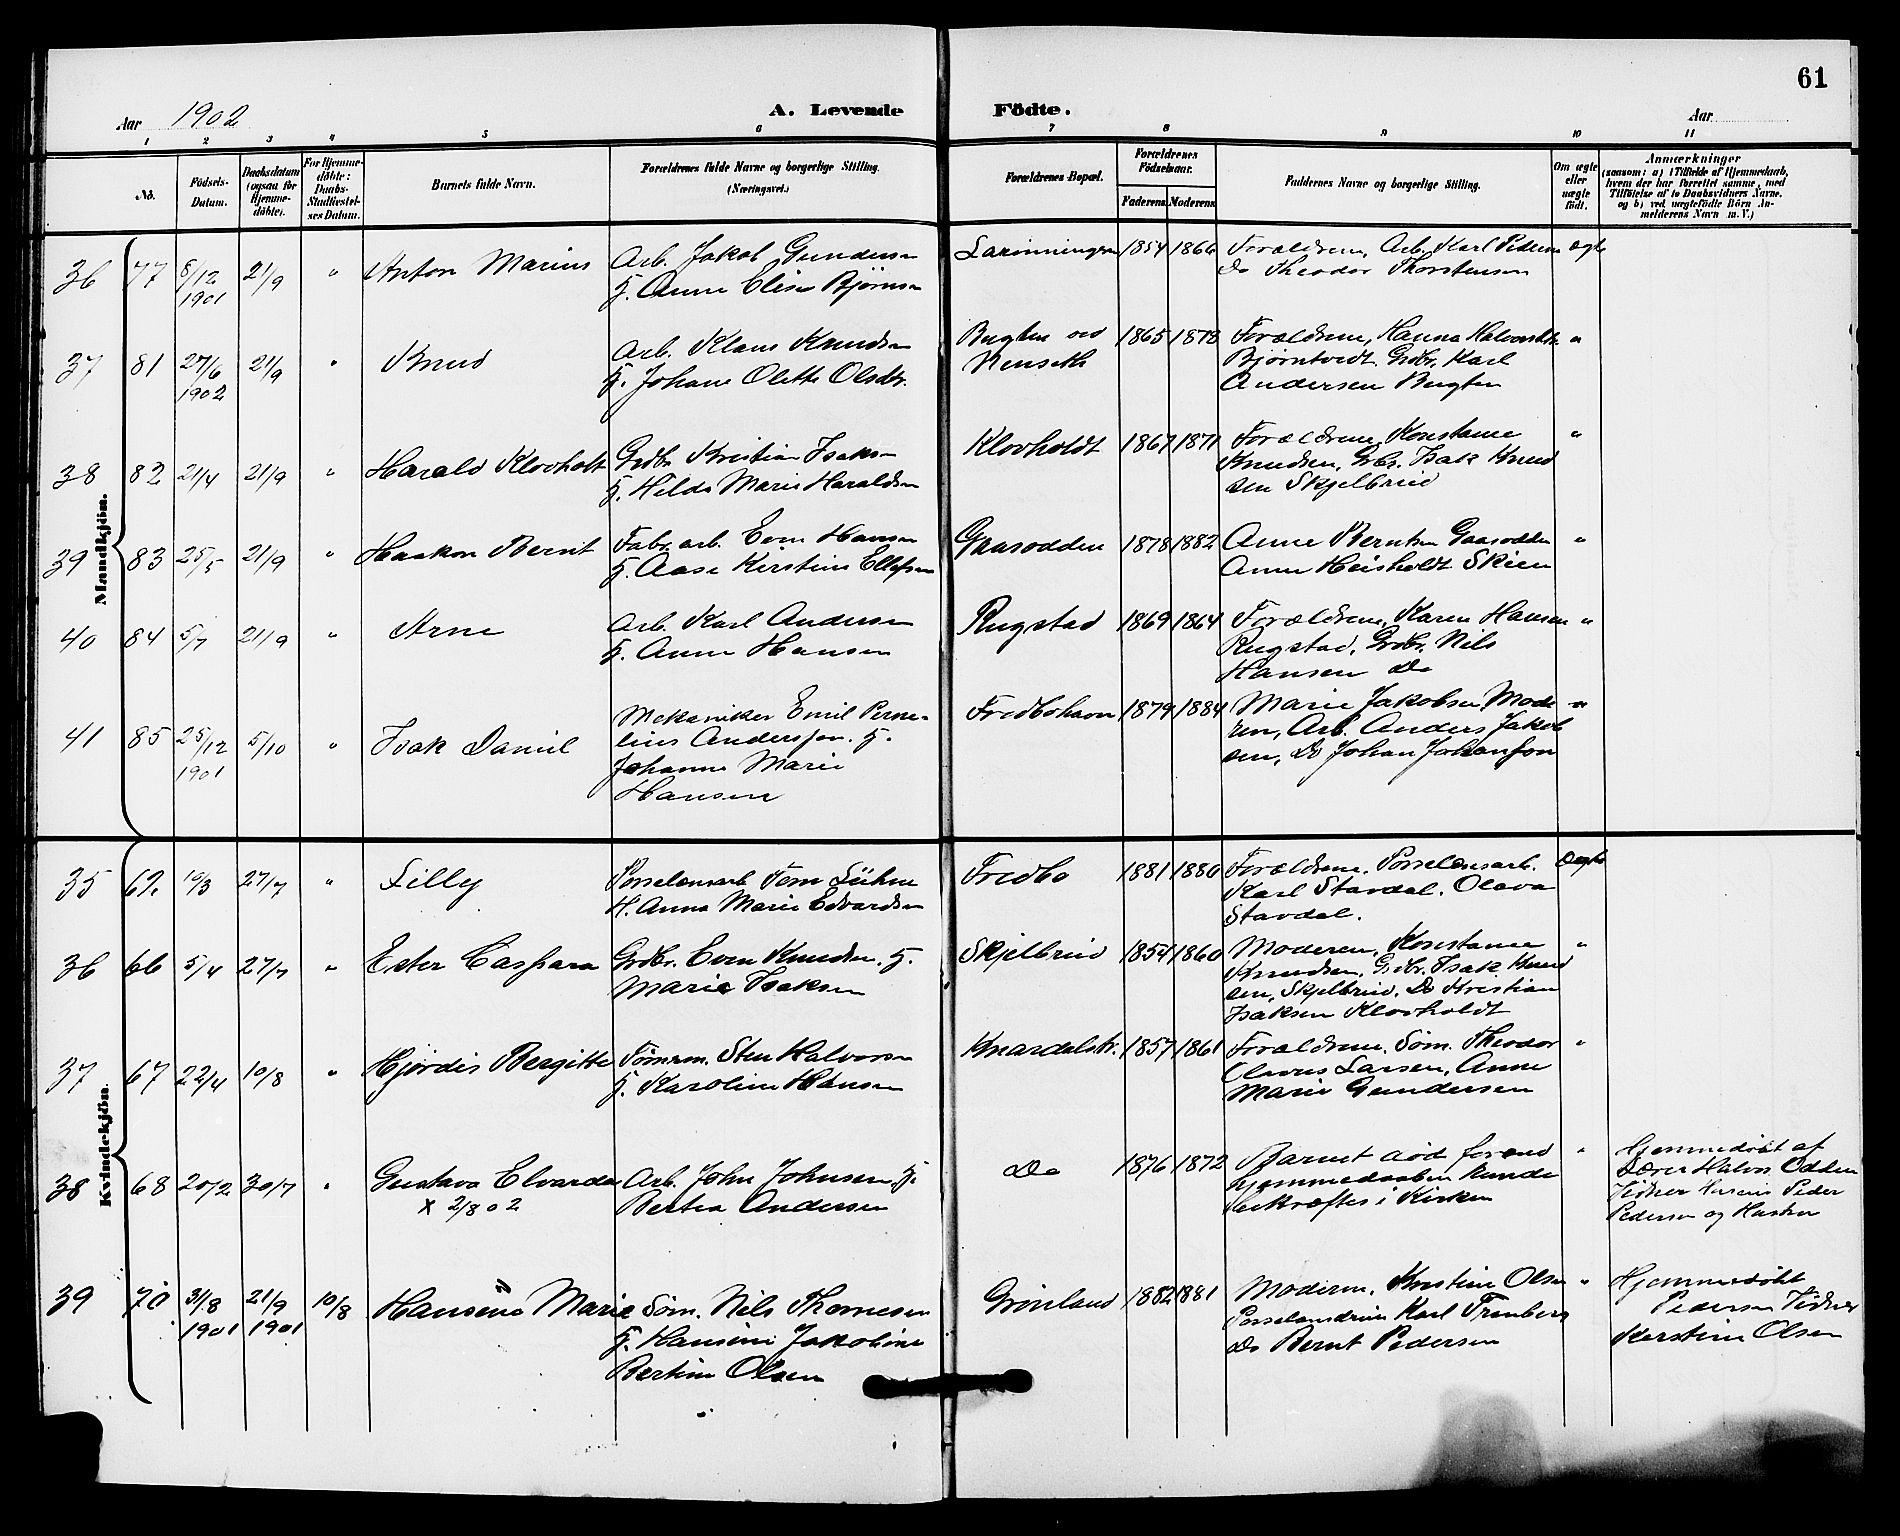 61
Aar 1902 A. Levende Födte. Aar
1 2 3 4 5 6 7 8 9 10 11
No.
Födsels-Datum.
Daabsdatum (ogsaa for Hjemme-döbte).
For Hjemme-döbte: Daabs-Stadfæstel-ses Datum.
Barnets fulde Navn.
Forældrenes fulde Navne og borgerlige Stilling. (Næringsvei.)
Forældrenes Bopæl.
Forældrenes Födselsaar.
Faderens Moderens
Faddernes Navne og borgerlige Stilling.
Om ægte eller uægte födt.
Anmærkninger
(saasom: a) i Tilfælde af Hjemmedaab,
hvem der har forrettet samme, med
Tilföielse af to Daabsvidners Navne,
og b) ved uægtefödte Börn An-
melderens Navn m. V.)
Mandkjön.
36 77 8/12 1901 21/9 " Anton Marius
Arb. Jakob Gundersen
H. Anne Elise Bjørnsen
1854 1866
Forældrene, Arb. Karl Pedersen
Do Theodor Thorstensen
Ægte
37 81 27/6 1902 21/9 " Knud
Arb. Klaus Knudsen
H. Johane Olette Olsdtr.
Bugten ved
Nenseth
1865 1878
Forældrene, Hanna Halvorsdtr.
Bjørntvedt, Grdbr. Karl
Andersen Bugten
"
38 82 21/4 21/9 " Harald Klovholt
Grdbr. Kristian Isaksen
H. Hilda Marie Haraldsen
Klovholdt 1867 1871
Forældrene, Konstanse
Knudsen, Grbr. Isak Knud
sen Skjelbred
"
39 83 25/5 21/9 " Haakon Bernt
Fabr. arb. Even Hansen
H. Aase Kirstine Ellefsen
Gaasodden 1878 1882
Anne Berntsen Gaasodden
Anne Heisholdt Skien
"
40 84 5/7 21/9 " Arne
Arb. Karl Andersen
H. Anne Hansen
Rugstad 1869 1864
Forældrene, Karen Hansen
Rugstad, Grdbr. Nils
Hansen Do
"
41 85 25/12 1901 5/10 " Isak Daniel
Mekaniker Emil Perne-
lius Andersson. H.
Johanne Marie
Hansen
Fredbohavn 1879 1884
Marie Jakobsen, Mode
ren, Arb. Anders Jakob
sen, Do Johan Johansson
"
Kvindekjön.
35 62 10/3 27/7 " Lilly
Porselænsarb. Tom Lühne
H. Anna Marie Edvardsen
Fredbo 1881 1880
Forældrene. Porselænsarb.
Karl Stavdal. Olava
Stavdal.
Ægte
36 66 5/4 27/7 " Ester Caspara
Grdbr. Even Knudsen. H.
Marie Isaksen
Skjelbred 1854 1860
Moderen, Konstanse
Knudsen, Grdbr. Isak Knud
sen, Skjelbred. Do Kristian
Isaksen Klovholdt
"
37 67 22/4 10/8 " Hjördis Bergitte
Tømrm. Sten Halvorsen
H. Karoline Hansen
Knardalstr. 1857 1861
Forældrene. Søm. Theodor
Olavus Larsen, Anne
Marie Gundersen
"
38 68 20/2 30/7 " Gustava Elvarda
x 2/8 02
Arb. John Johnsen H.
Bertea Andersen
Do 1876 1872
Barnet død forend
hjemmedaaben kunde
bekræftes i Kirken
"
Hjemmedøbt af
Lærer Halvor Odden
Vidner Huseier Peder
Pedersen og Hustru
39 70 31/8 1901 21/9 1901 10/8 Hansena Marie
Søm. Nils Thomesen
H. Hansine Jakobine
Bertine Olsen
Grønland 1882 1881
Moderen, Kristine Olsen
Porselænsdreier Karl Trenberg
Do Bernt Pedersen
"
Hjemmedøbt
Pedersen Vidner
Kerstine Olsen